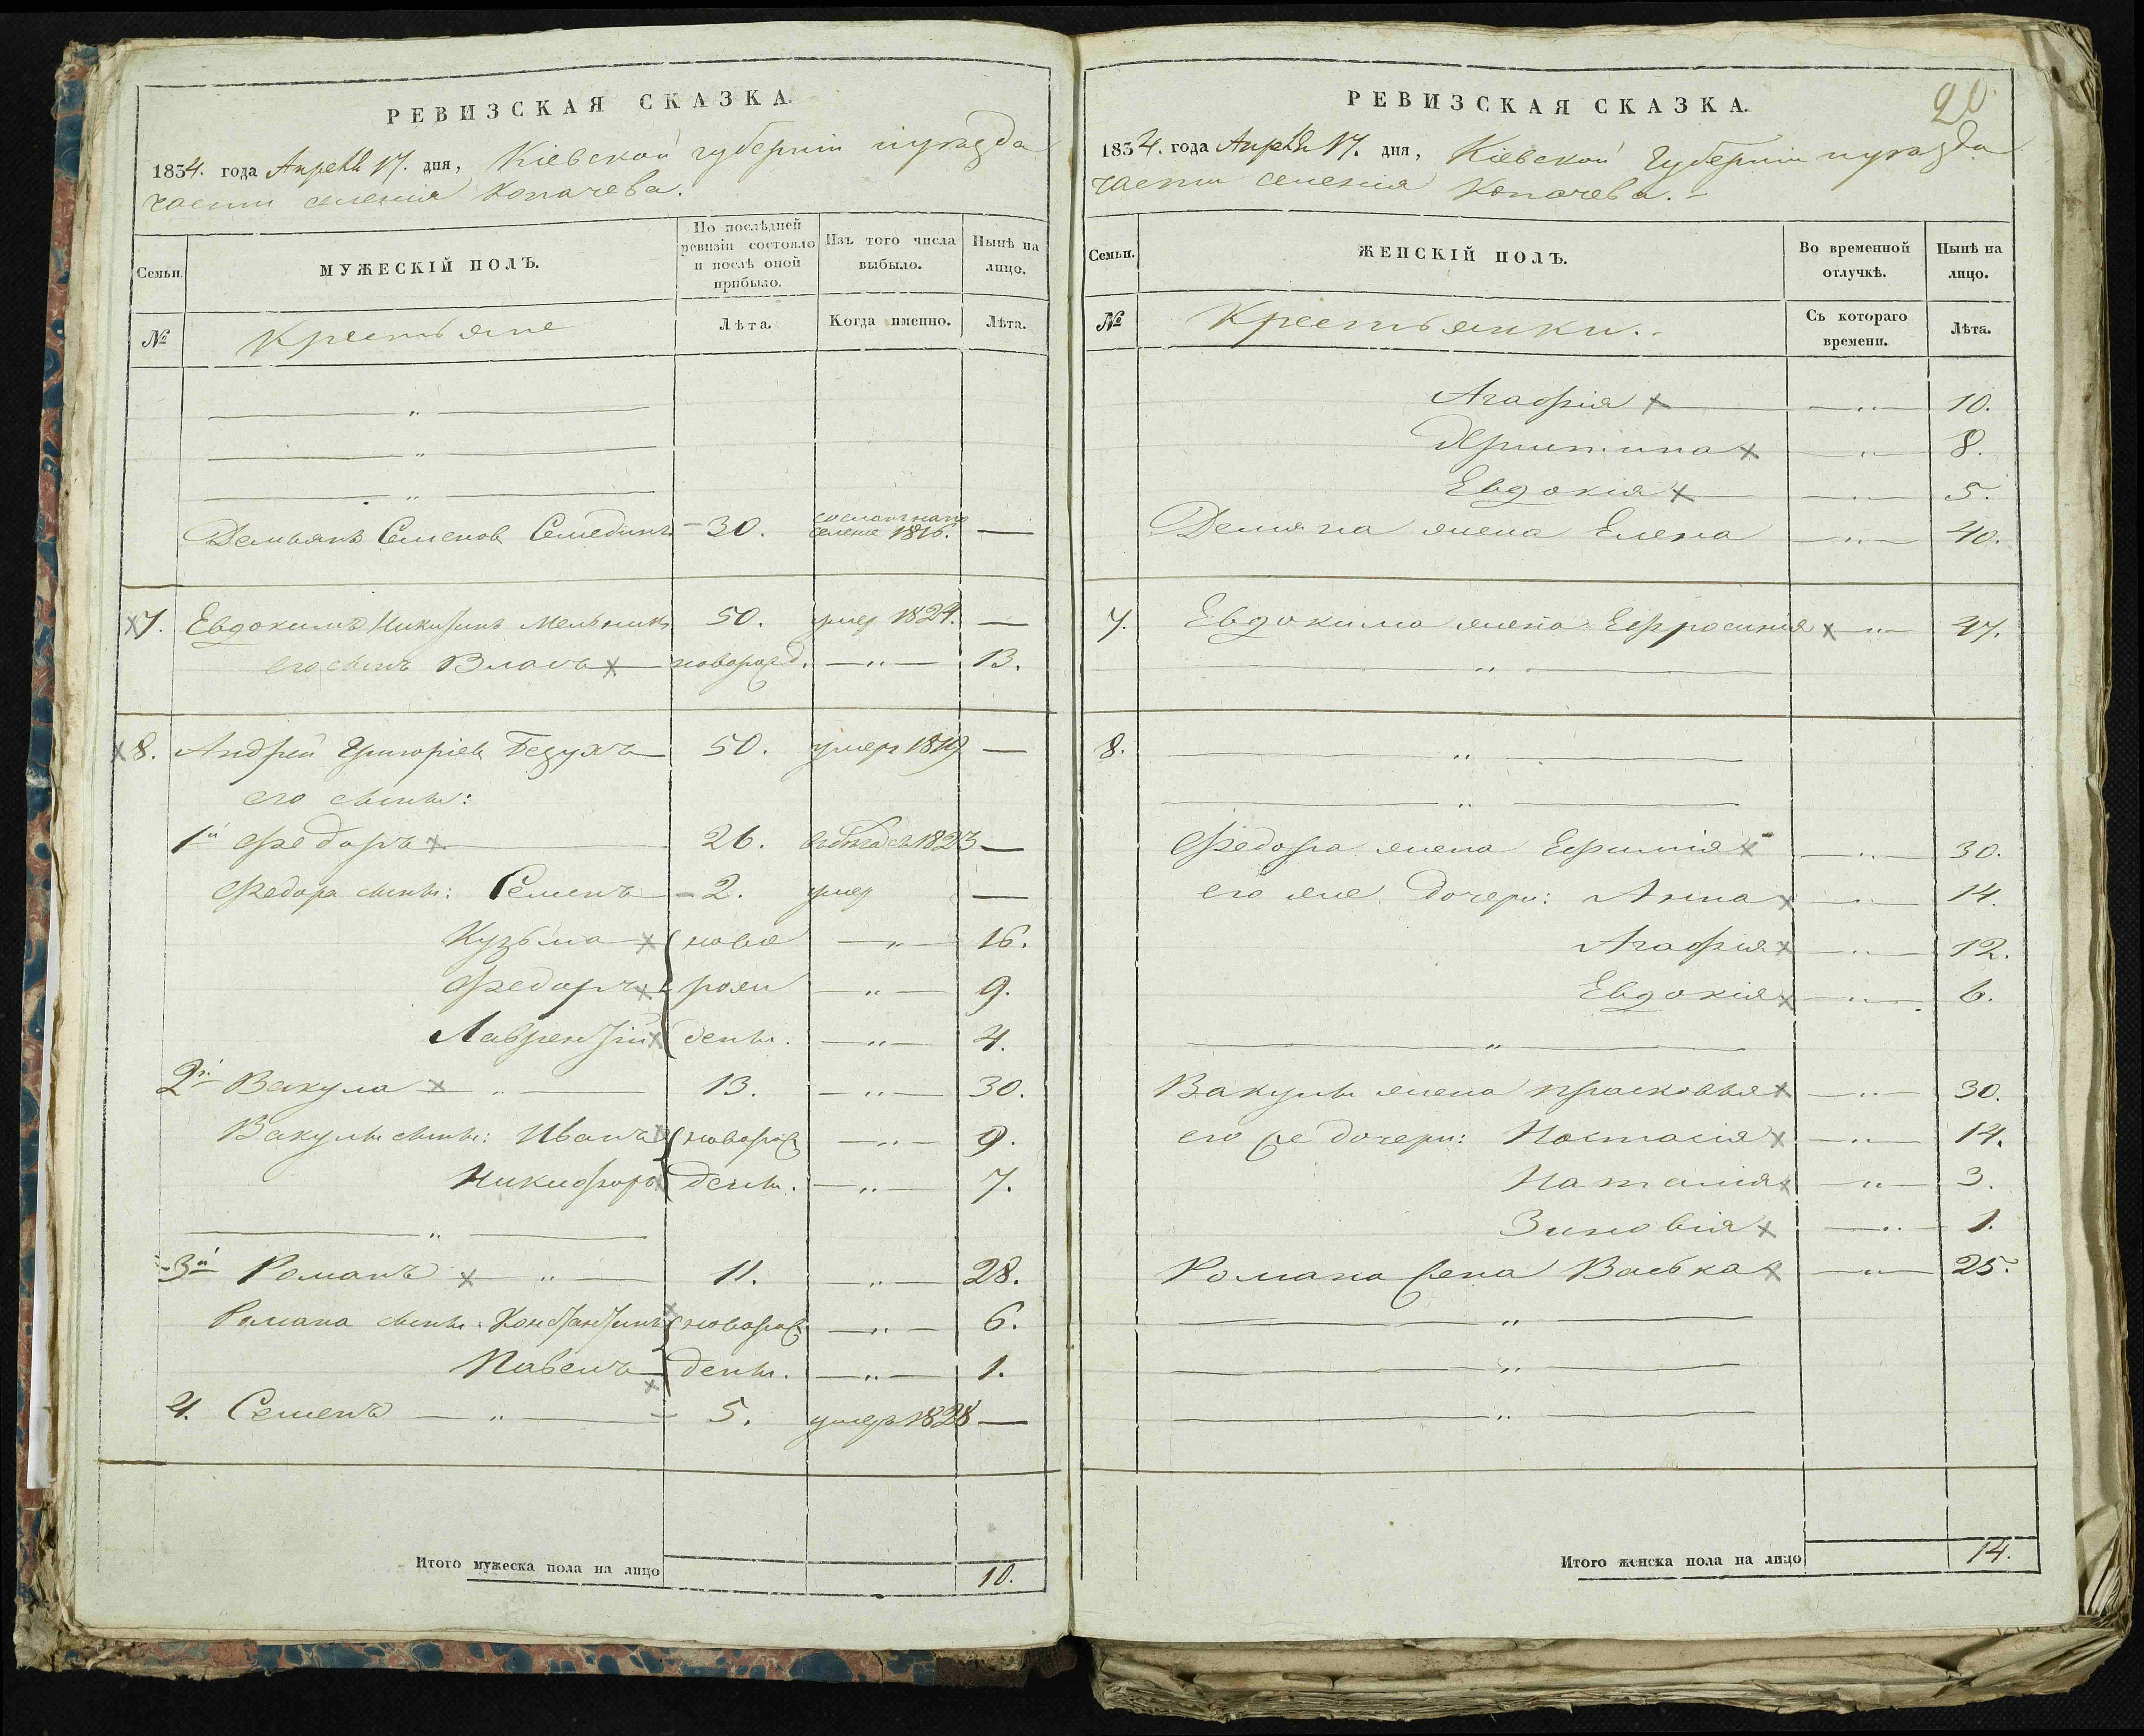 РЕВИЗСКАЯ СКАЗКА.
1834. года Апреля 17. дня, Кіевской губерніи и уезда
части селенія Копачева.
Семьи.
МУЖЕСКІЙ ПОЛЪ.
По послѣдней ревизіи состояло и послѣ оной прибыло.
Изъ того числа выбыло.
Нынѣ на лицо.
№
Крестьяне
Лѣта.
Когда именно.
Лѣта.
Демьянъ Семеновъ 30. сосланъ на поселеніе 1816. —
7. Евдокимъ Никитинъ Мельникъ 50. умер 1824. —
его сынъ Власъ новорожд. — „ — 13.
8. Андрей Григоріевъ 50. умеръ 1819 —
его сыны:
1й Федоръ 26. 1823 —
Федора сыны: Семенъ 2. умер —
Кузьма ново — „ — 16.
Федоръ рож — „ — 9.
Лаврентій дены. — „ — 4.
2й Вакула — „ — 13. — „ — 30.
Вакулы сыны: Иванъ новорож — „ — 9.
Никифоръ дены. — „ — 7.
— „ —
3й Романъ — „ — 11. — „ — 28.
Романа сыны: Константинъ новорож — „ — 6.
Павелъ дены. — „ — 1.
4. Семенъ — „ — 5. умеръ 1828 —
Итого мужеска пола на лицо 10.
РЕВИЗСКАЯ СКАЗКА.
1834. года Апреля 17. дня, Кіевской Губерніи и уезда
части селенія Копачева. —
Семьи.
ЖЕНСКІЙ ПОЛЪ.
Во временной отлучкѣ.
Нынѣ на лицо.
№
Крестьянки.
Съ котораго времени.
Лѣта.
Агафія — „ — 10.
— „ — 8.
Евдокія — „ — 5.
Демяна жена Елена — „ — 40.
7. Евдокима жена Ефросинія — „ — 47.
— „ —
8. — „ —
— „ —
Федора жена Ефимія — „ — 30.
его же дочери: Анна — „ — 14.
Агафія — „ — 12.
Евдокія — „ — 6.
— „ —
Вакулы жена Прасковья — „ — 30.
его же дочери: Настасія — „ — 14.
Наталія — „ — 3.
Зиновія — „ — 1.
Романа жена Васька — „ — 25.
— „ —
— „ —
— „ —
Итого женска пола на лицо 14.